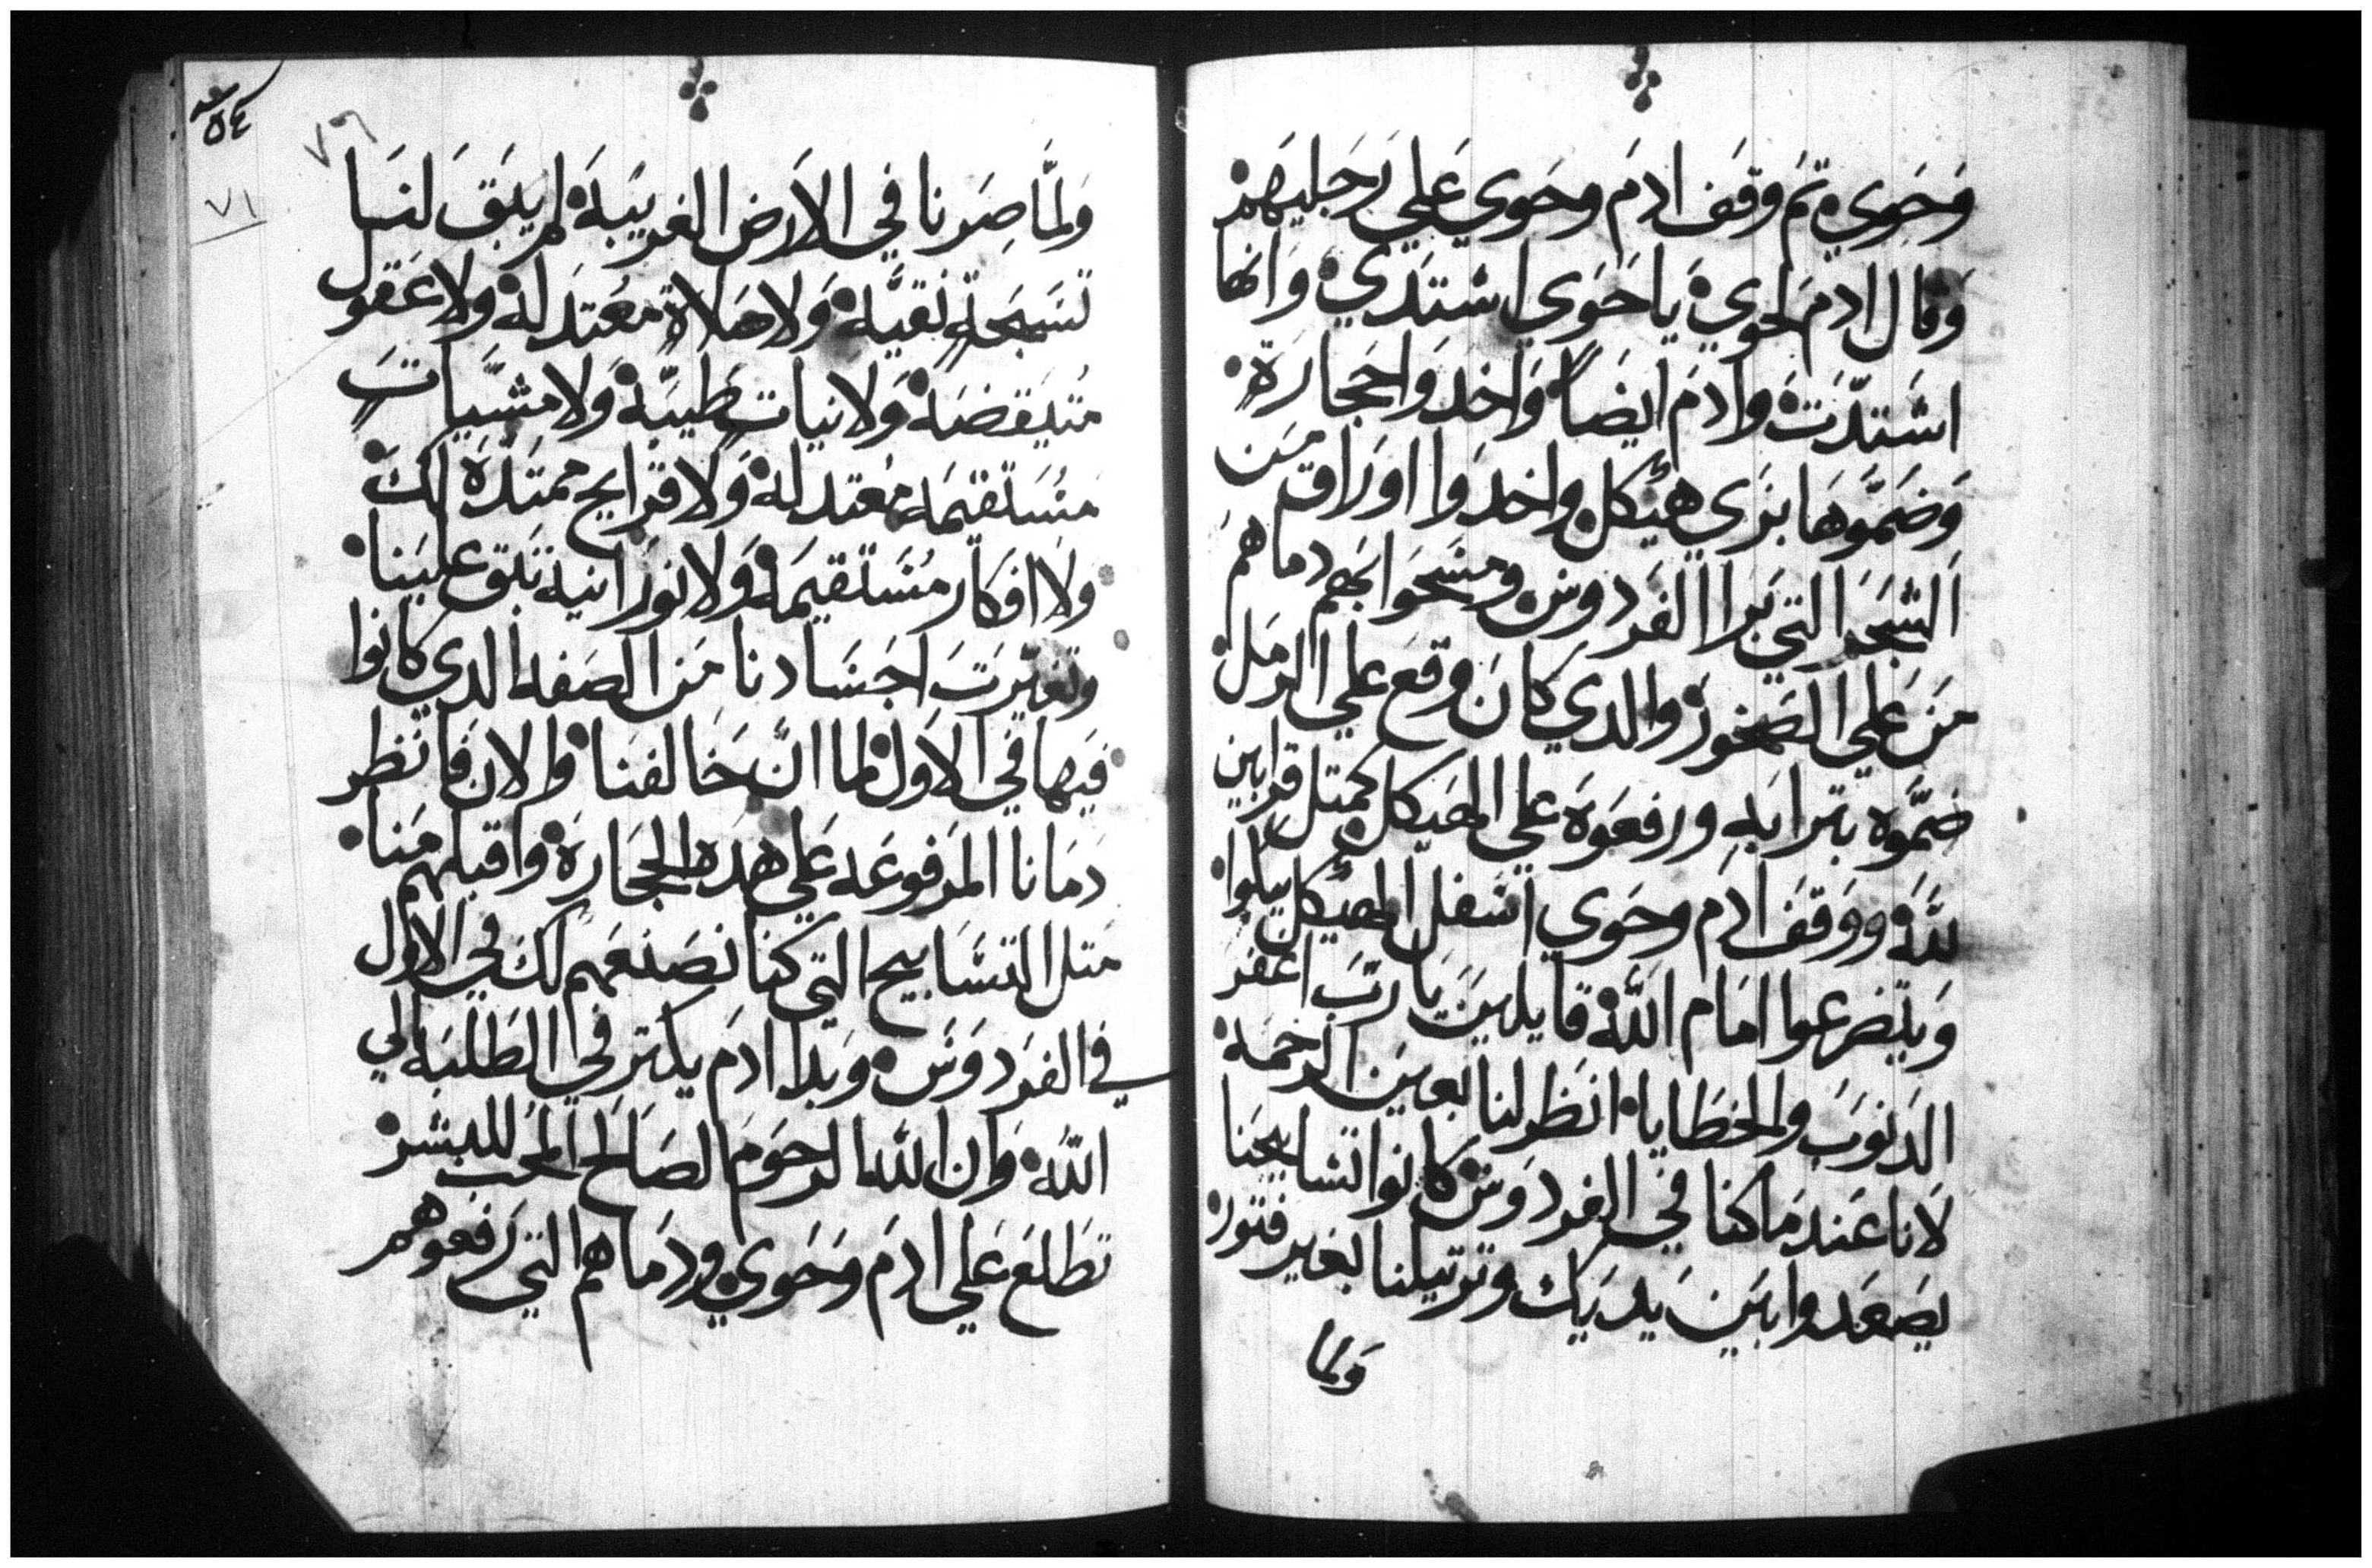 وَحَوي ثم وقف ادم وحوي علي رجليهم
وقال ادم لحوي يا حوي اشتدي وانها
اشتدت وادم ايضاً واخدوا حجارة
وضموها بزي هيكل واخدوا اوراق من
الشجر التي برا الفردوس ومسحوا بهم دماهم
من علي الصخور والدي كان وقع علي الرمل
ضموه بترابه ورفعوه علي الهيكل كمتل قرابين
لله ووقف ادم وحوي اسفل الهيكل يبكوا
ويتضرعوا امام الله قايلين يا رب اغفر
الدنوب والخطايا انظر لنا بعين الرحمه
لانا عندما كنا في الفردوس كانوا تسابيحنا
يصعدوا بين يديك وترتيلنا بغير فتور
ولما
٥٤
٧٦
٧١
ولما صرنا في الارض الغريبة لم يبق لنا
تسبحة نقيه ولا صلاة معتدله ولا عقول
متيقضه ولا نيات طيبة ولا مشيات
مستقيمه معتدله ولا قرايح ممتدة لك
ولا افكار مستقيمه ولا نورانية تبق علينا
وتغيرت اجسادنا من الصفه الدي كانوا
فيها في الاول لما ان خالفنا والان فانظر
دمانا المرفوعه علي هده الحجارة واقبلهم منا
متل التسابيح التي كنا نصنعهم لك في الاول
في الفردوس وبدا ادم يكتر في الطلبه الي
الله وان الله الرحوم الصالح المحب للبشر
تطلع علي ادم وحوي ودماهم التي رفعوهم